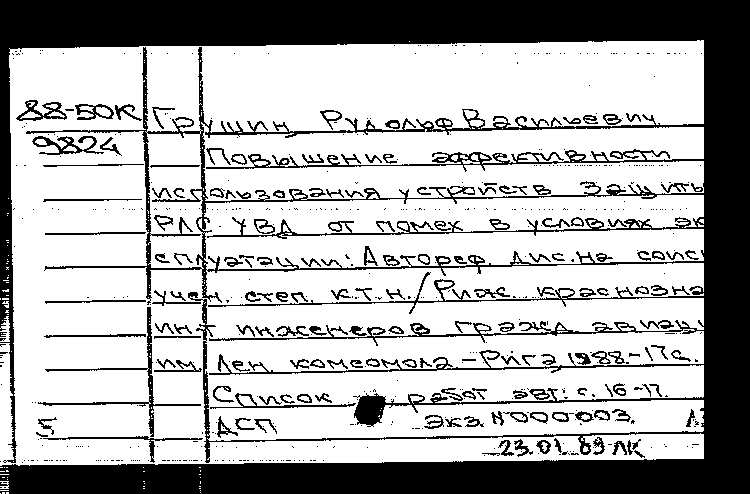 88-50К Грушин, Рудольф Васильевич
9824 Повышение эффективности
использования устройств защиты
РЛС УВД от помех в условиях эк
сплуатации: Автореф. дис. на соиск
учен. степ. к.т.н. / Риж. краснозна
ин-т инженеров гражд. авиац
им. Лен. комсомола. - Рига, 1988. - 17 с.
Список работ авт.: с. 16-17.
5 ДСП Экз. N 000003.
23.01.89 ЛК